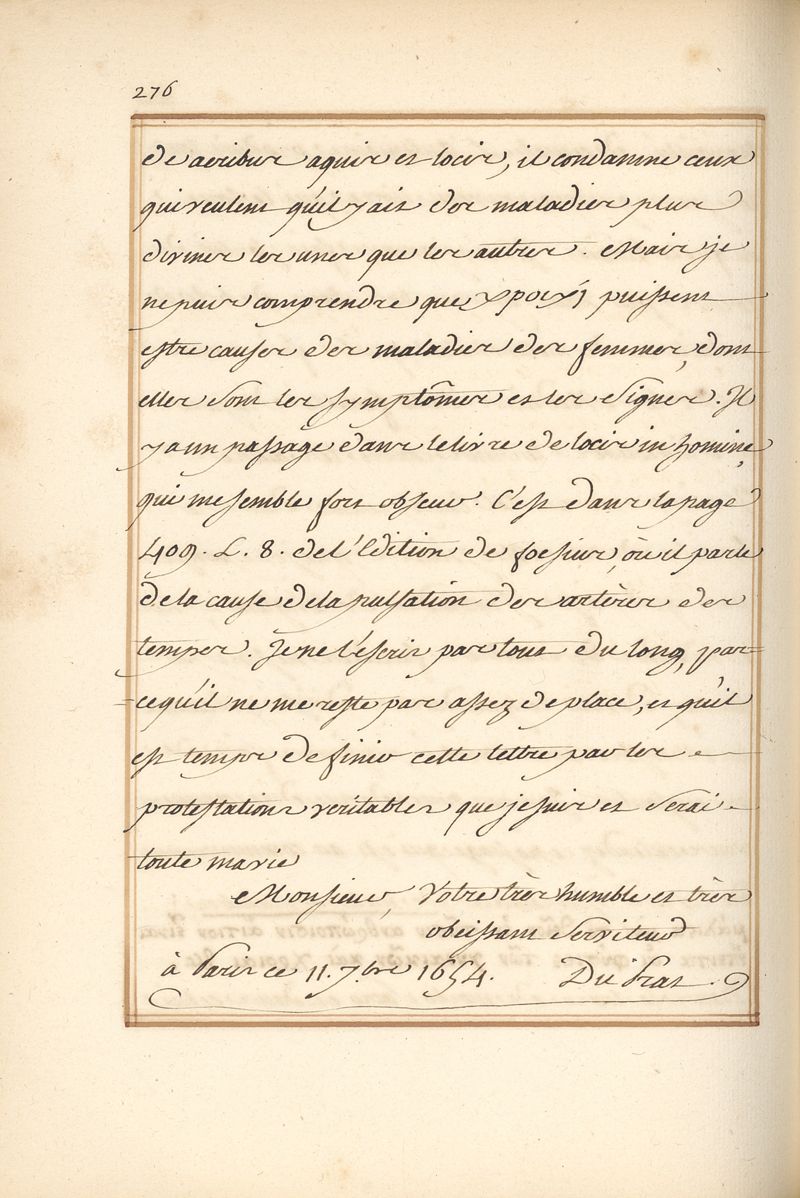 276
de aeribus aquis et locis, il condamne ceux
qui veulent qu'il y ait des maladies plus
divines les unes que les autres. Mais je
ne puis comprendre que puissent
estre causes des maladies des femmes, dont
elles sont les symptômes et les signes. Il
y a un passage dans le livre de locis in homine,
qui me semble fort obscur. C'est dans la page
409. L. 8. de l'Edition de foesius, où il parle
de la cause de la pulsation des artères des
tempes. Je ne l'escris pas tout du long, par=
=cequ'il ne me reste pas assez de place, et qu'il
est temps de finir cette lettre par les
protestations veritables que je suis et serai
toute ma vie
Monsieur, Votre très humble et très
obeissant Serviteur
à Paris ce 11. 7.bre 1654. Du Prat.